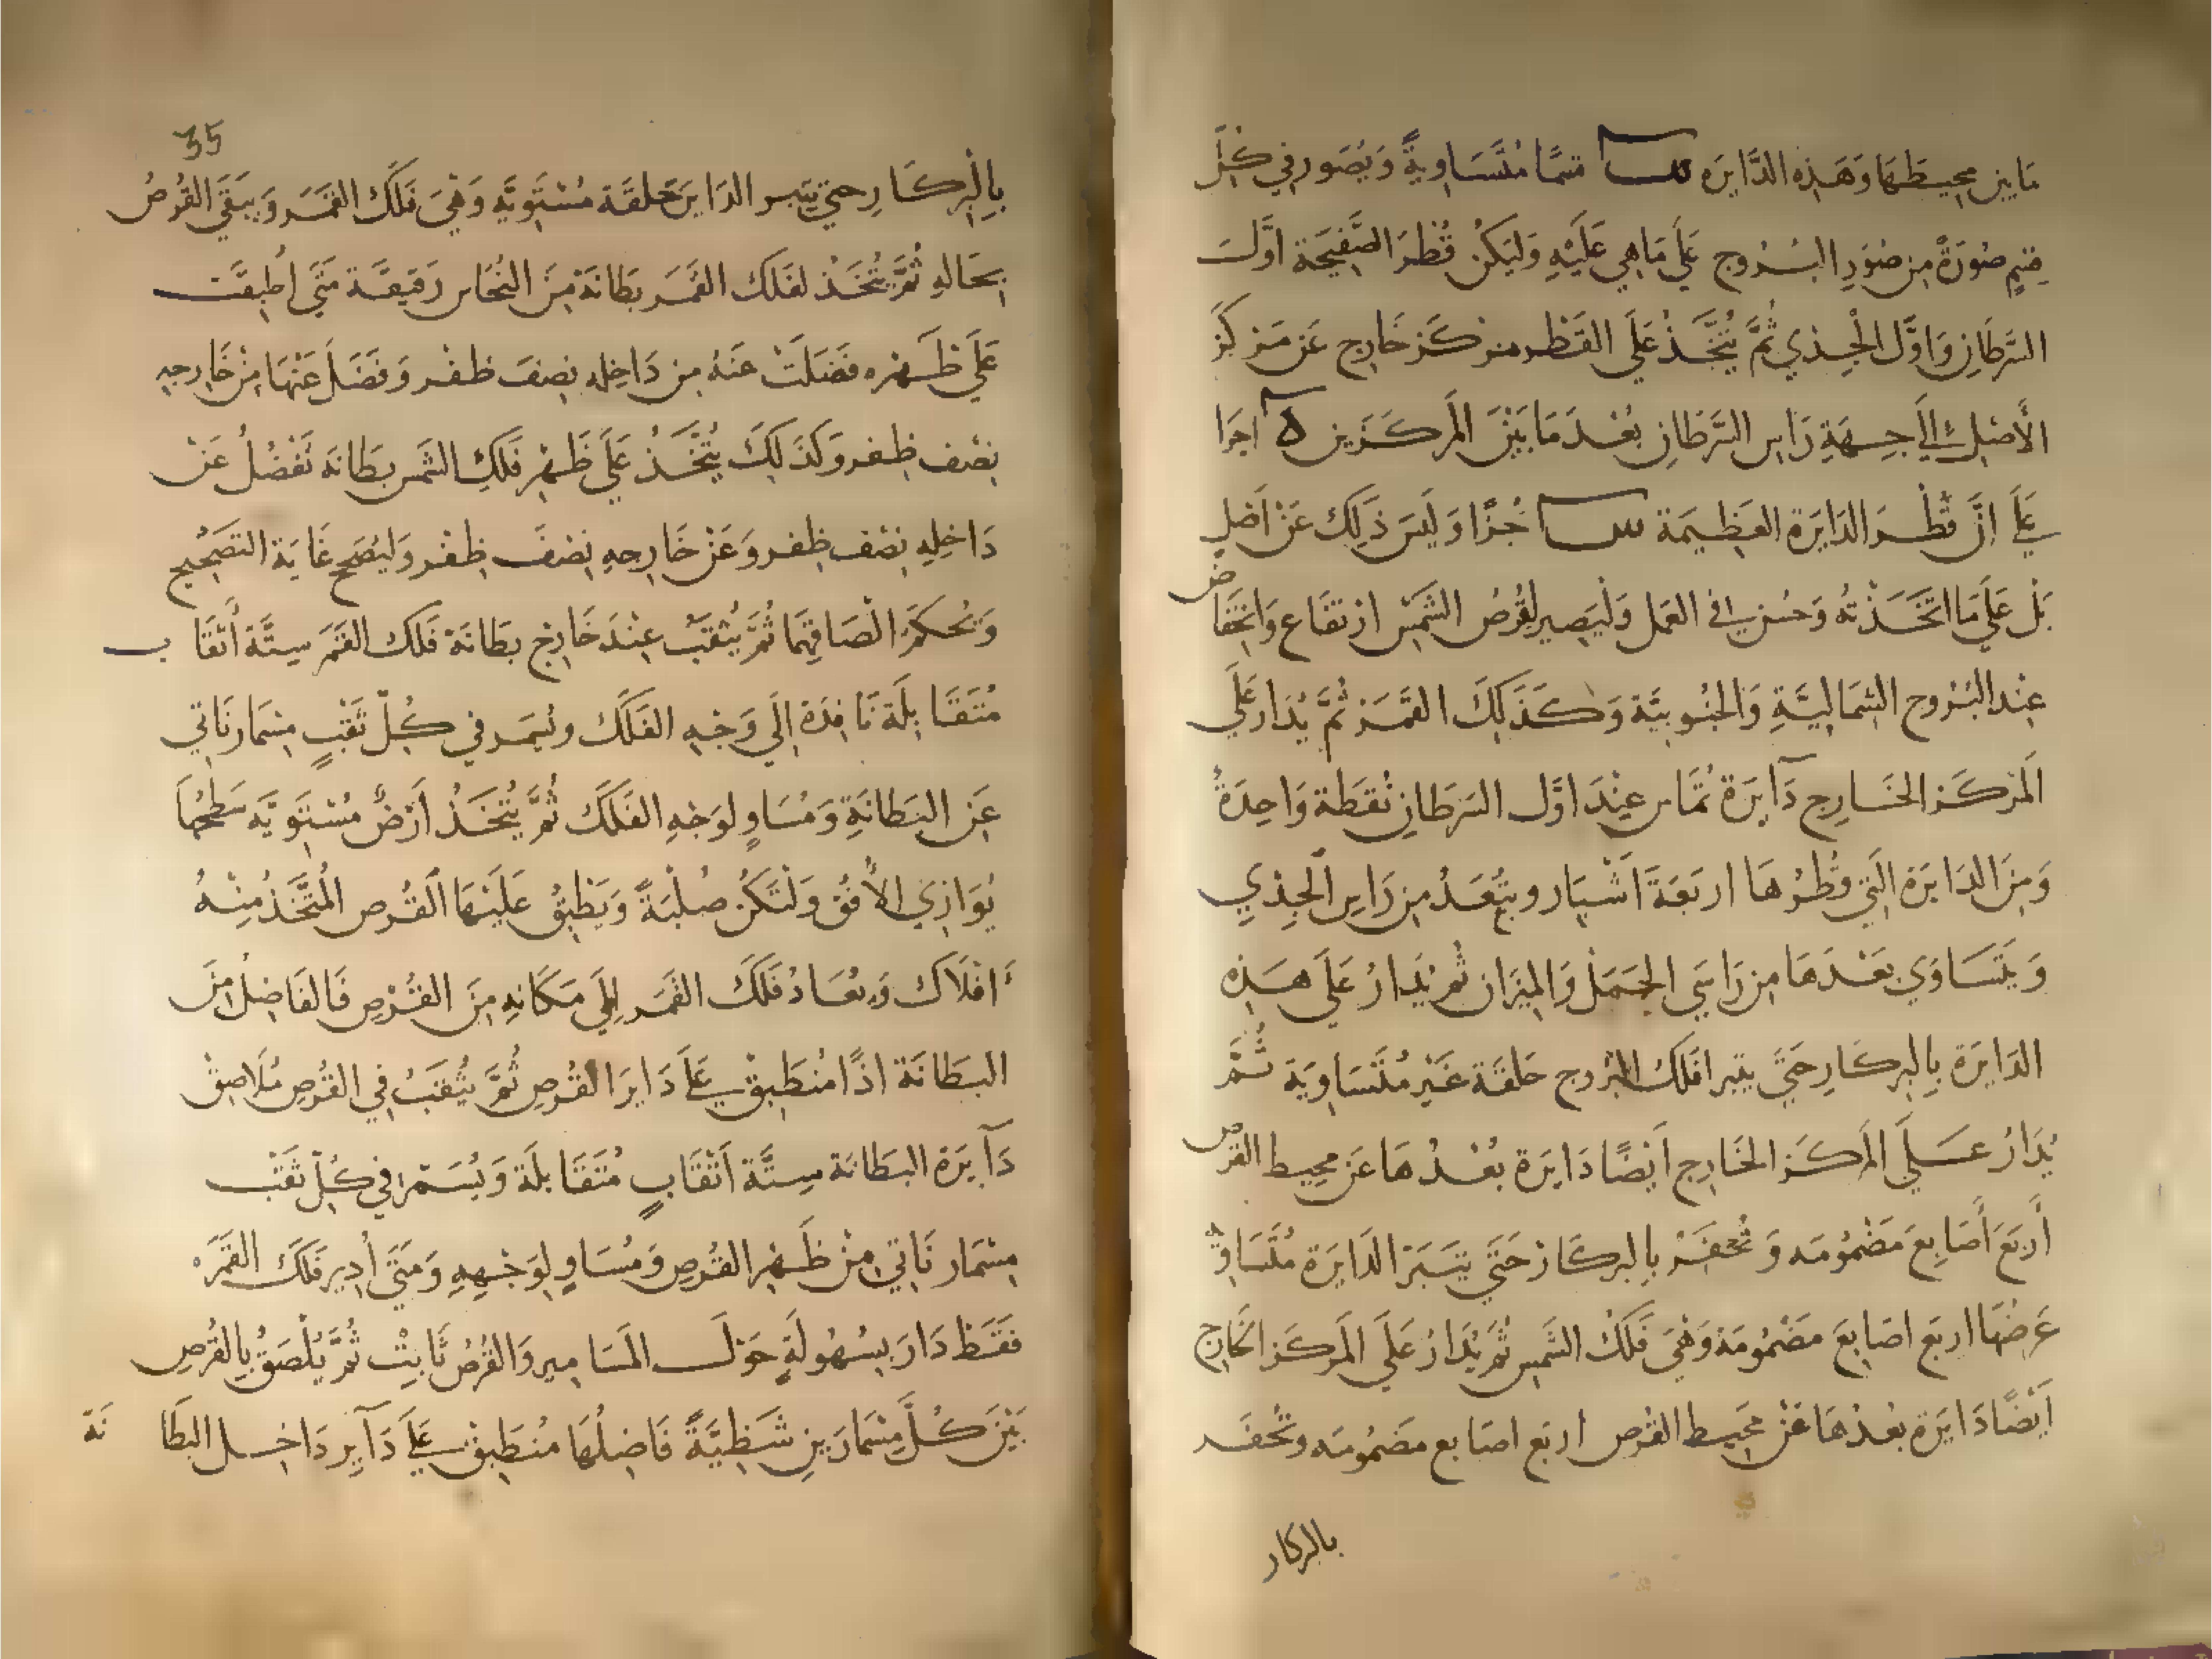 مَا بين محِيطهَا وَهَذِه الدَّايرَه قسمًا مُتَسَاوِيةً وَيُصَور في كلِّ
قِسْمٍ صُورَةً مِن صُوَرِ البُرُوج عَلَي مَا هِي عَلَيْهِ وَليَكُنْ قُطرَ الصَّفِيحَة اوَّل
السَّرطَانِ وَاوَّل الجَدْي ثُمَّ يُتَّخَذُ عَلَي القَطْر مركَز خَارج عَن مَركَز
الأَصْل إلَي جِهَةِ رَاسِ السَّرَطَانِ بُعْدَ مَا بَيْنَ المَركَزَين ه اجزا
عَلَي انَّ قُطْرَ الدَايرَة العَظِيمَة جُزًا وَلَيسَ ذَلِك عَنْ اَصْلٍ
بَل عَلَي مَا اتَّخَذْتُه وَحُسْن في العَمل وَليَصِير لِقُرصُ الشَّمْسِ ارتفَاع وَانخِفَاض
عِند البُرُوح الشمَاليَّةِ وَالجنُوبيَّة وَكَذَلِكَ القَمَر ثمَّ يُدَار عَلَي
اَلمَركَز الخَارِج دَآيرَة تُمَاس عِنْدَ اوَّل السَرطَانِ نُقطَة وَاحِدَةً
وَمِنَ الدَايرَة الَتي قُطرُهَا اربَعَةَ اَشبَار ويبْعَدُ مِن رَاسِ الجِدْيِ
وَيَتَسَاوَي بعَدَهَا مِن رَاسَي الحَمَل وَالمِيزَان ثُم يُدَارُ عَلَي هَذِه
الدَايرَة بِالبركَارِ حَتَّي يتبرا فَلَك البُروج حَلقَة غَير مُتَسَاوِيَة ثُمَّ
يُدَارُ عَلَي المَركَز الخَارِج اَيضًا دَايرَة بُعْدُهَا عَن محِيط القُرص
أَربَعَ أَصَابِعَ مَضمُومَه وَتُحفَرُ بِالبركَار حَتَّي يتبَرَ الدَايرَة مُتَسَاوٍ
عَرضُهَا اربَع اصَابعَ مَضمُومَة وَهْيَ فَلَكُ الشَّمسِ ثُمَّ يُدَارُ عَلَي المَركَز الخَارِج
اَيْضًا دَايرَة بعْدُهَا عَنْ مُحِيط القُرص اربَع اصَابع مَضمُومَه وتُحفَر
بالبركار
35
بِالبركَارِ حتي يتبر الدَايرَة حَلقَة مُسْتَوِيَّةٍ وَهْيَ فَلَكُ القَمَر وَيَبقَي القُرصُ
بحَالهِ ثُمَّ يُتَّخَذ لفَلَك القَمَر بِطَانَة مِنَ النُحَاس رَقيقَة مَتَي اُطبِقَت
عَلَي ظَهْرِه فَضَلَتْ عَنهُ مِن دَاخِلِهِ نِصْفَ ظفر وَفَضَلَ عَنْهَا مِنْ خَارِجِهِ
نِصْف ظفر وَكَذَلِكَ يُتَّخَذُ عَلَي ظَهْرِ فَلَكِ الشَمس بِطَانَه تَفْضُلُ عَنْ
دَاخِلِه نِصْف ظفر وَعَنْ خَارِجِهِ نِصْفَ ظِفْر وَليُصَح غَايَة التَصْحِيح
وَيُحكَمُ الْصَاقِهِمَا ثُمَّ يُثقَبْ عِنْدَ خَارِج بطَانَة فَلَك القَمَر سِتَّة أَثْقَاب
مُتَقَابلَة نَافِدَة إلَي وَجْهِ الفَلَك وَيُسَمر في كلّ ثَقْبٍ مِسْمَار نَاتي
عَن البَطَانَةِ وَمُسَاوٍ لوَجهِ الفَلَك ثُمَّ يُتَّخَذُ أَرْضٌ مُسْتَوِيَّه سَطحُهَا
يُوَازِي الأُفُق وَلتَكُنْ صُلْبَةً وَيَطْبِقُ عَلَيْهَا القُرص المُتَّخَذُ مِنْهُ
اَفْلَاك وَيعَادُ فَلَكَ القَمَر إلَي مَكَانِه مِنَ القُرْصِ فَالفَاضِلُ مِنَ
البَطَانَة اذًا مُنطَبِق عَلَي دَايرَ القُرصِ ثُمَّ يُثقَبُ فِي القُرصِ مُلَاصِقْ
دَآيرَة البَطَانَة سِتَّة اَثْقَابٍ مُتَقَابلَة وَيُسَمْر فِي كُلّ ثَقْب
مِسْمَار نَاتِي مِنْ ظَهْرِ القُرصِ وَمُسَاوٍ لِوَجْهِهِ وَمَتَي أُدِير فَلَكَ القَمَر
فَقَط دَارَ بِسُهُولَةٍ حَوْلَ المَسَامِير وَالقُرصُ ثَابِت ثُمَّ يُلصَقُ بِالقُرصِ
بَيْنَ كُلّ مِسْمَارَينِ شَظِيَّةً فَاضِلُهَا مُنطَبِق عَلَي دَآيِر دَاخِل البطَانَة